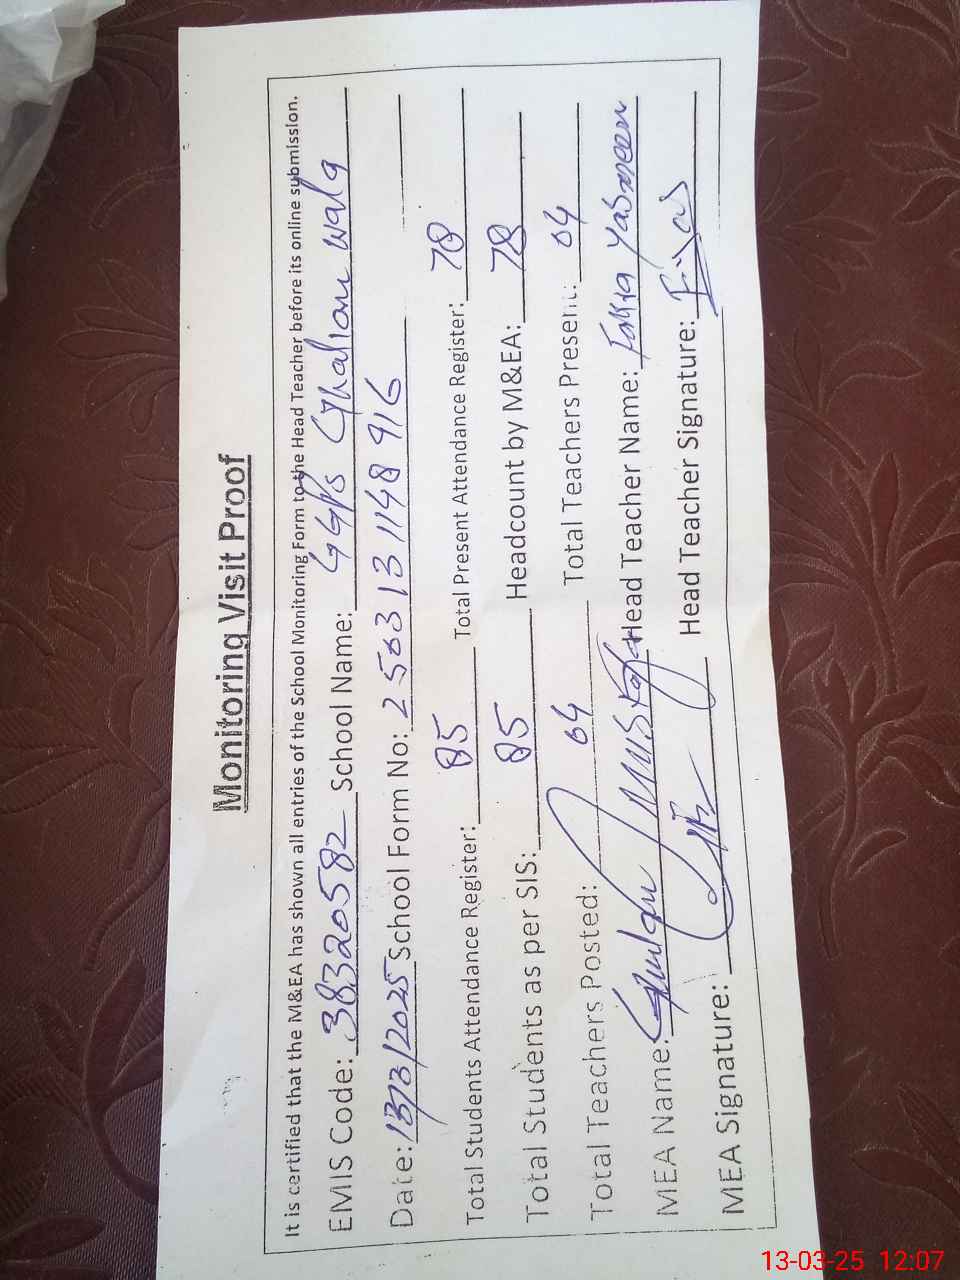 Monitoring Visit Proof
It is certified that the M&EA has shown all entries of the School Monitoring Form to the Head Teacher before its online submission.
EMIS Code: 38320582 School Name: GGPS Ghalian wala
Date: 13/3/2025 School Form No: 250313 1148 916
Total Students Attendance Register: 85 Total Present Attendance Register: 78
Total Students as per SIS: 85 Headcount by M&EA: 78
Total Teachers Posted: 04 Total Teachers Present: 04
MEA Name: Ghulam Mustafa Head Teacher Name: Yasmeen
MEA Signature: Head Teacher Signature:
13-03-25 12:07